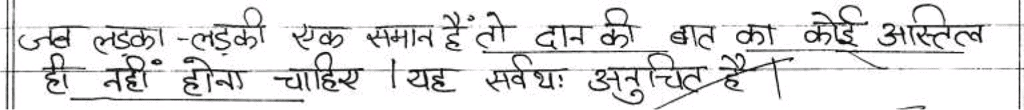 जब लडका -लड़की एक समान हैं तो दान की बात का कोई अस्तित्व
ही नहीं होना चाहिए । यह सर्वथः अनुचित है ।